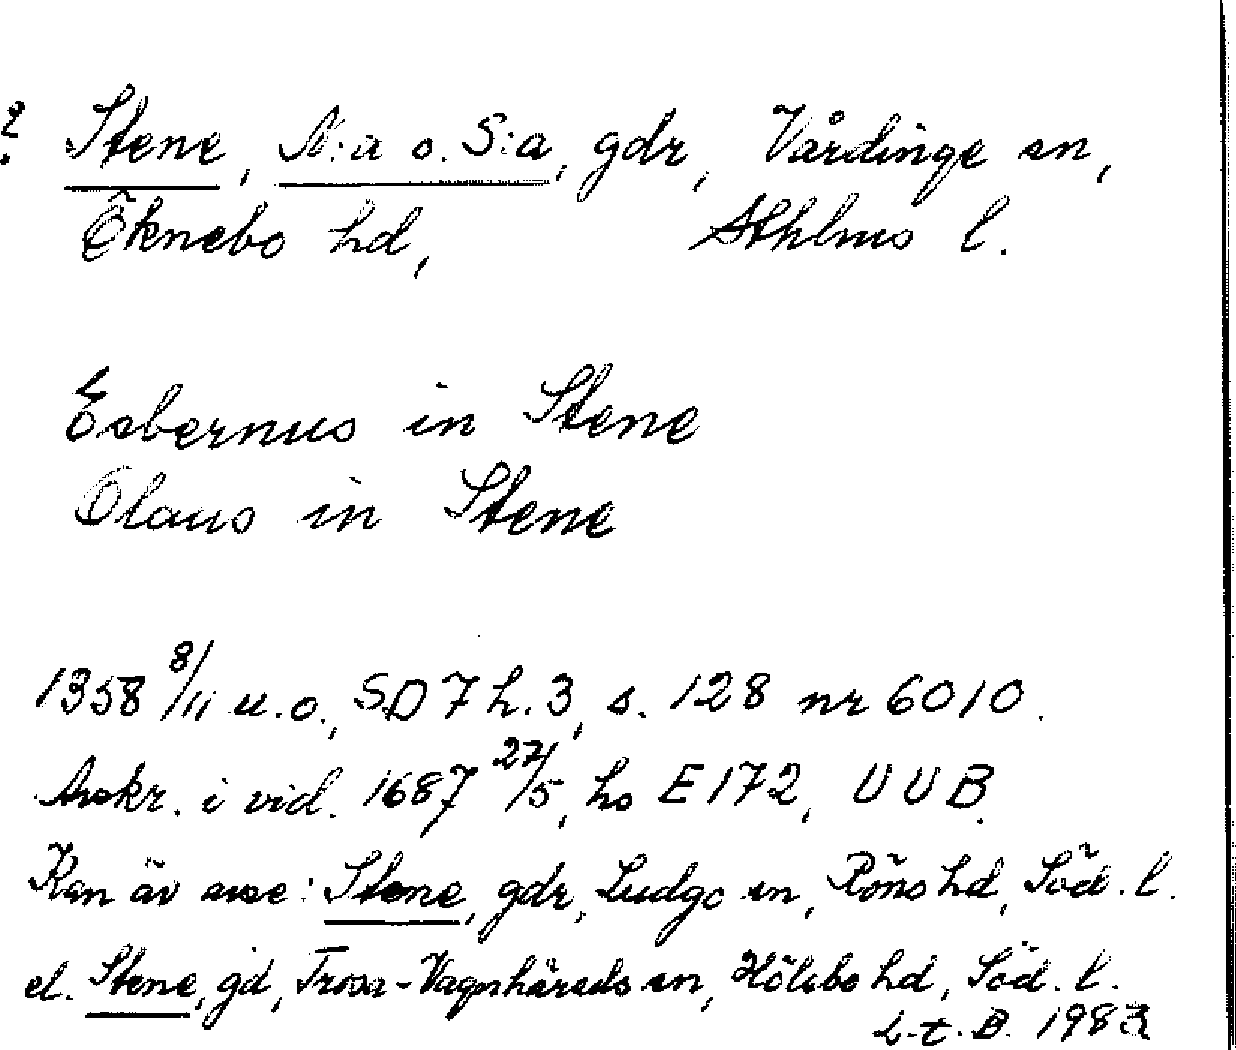 ? Stene, N:a o. S:a, gdr, Vårdinge sn,
Öknebo hd, Sthlms l.
Esbernus in Stene
Olaus in Stene
1358 8/11 u.o., SD 7 h. 3, s. 128 nr 6010.
Avskr. i vid. 1687 27/5, hs E 172, UUB.
Kan äv avse: Stene, gdr, Ludgo sn, Rönö hd, Söd. l.
el. Stene, gd, Trosa-Vagnhärads sn, Hölebo hd, Söd. l.
L-t. B. 1983